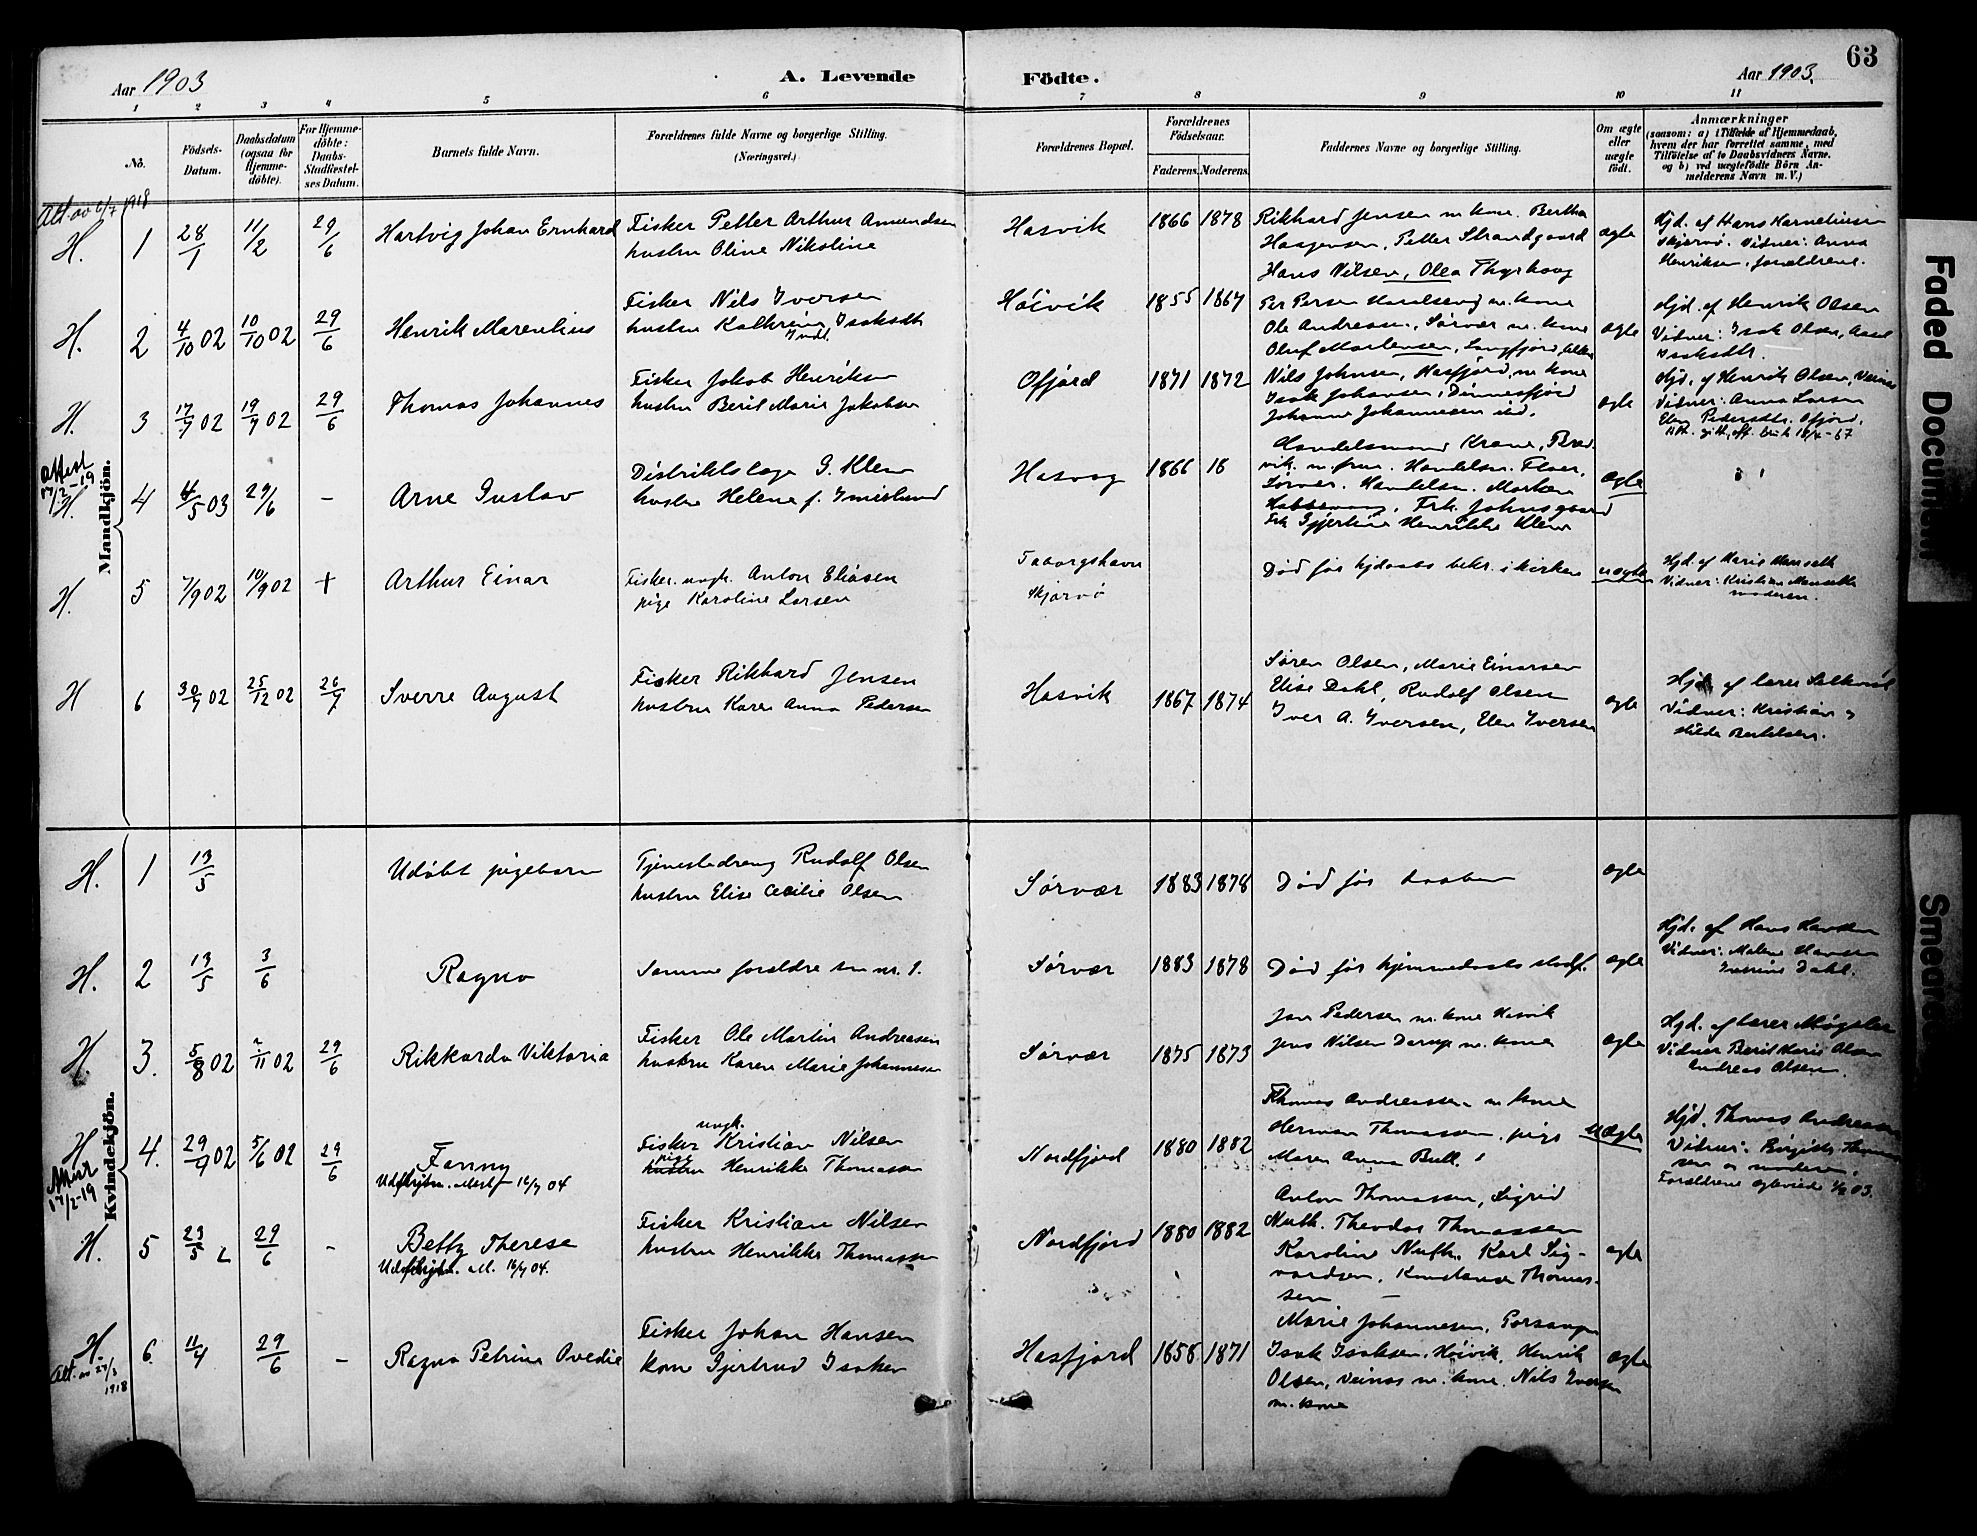 63
Aar 1903
A. Levende
Födte.
Aar 1903.
1 2 3 4 5 6 7 8 9 10 11
Nô.
Födsels-Datum.
Daabsdatum (ogsaa for Hjemme-döbte).
For Hjemme-döbte: Daabs-Stadfæstel-ses Datum.
Barnets fulde Navn.
Forældrenes fulde Navne og borgerlige Stilling.
(Næringsvei.)
Forældrenes Bopæl.
Forældrenes Födselsaar.
Faderens. Moderens.
Faddernes Navne og borgerlige Stilling.
Om ægte eller uægte födt.
Anmærkninger
(saasom: a) i Tilfælde af Hjemmedaab,
hvem der har forrettet samme, med
Tilföielse af to Daabsvidners Navne.
og b) ved uægtefödte Börn An-
melderens Navn m. V.)
Mandkjön.
Att. av 6/7 1918
H. 1 28/1 11/2 29/6 Hartvig Johan Ernhard
Fisker Petter Arthur Amundsen
hustru Oline Nikoline
Hasvik 1866 1878
Rikhard Jensen m. kone. Berthe
Haagensen, Petter Strandgaard
Hans Nilsen, Olea Thyrhaug
ægte
Hjd. af Hans Karneliusen
Skjervö. Vidner: Anna
Henriksen, forældrene.
H. 2 4/10 02 10/10 02 29/6 Henrik Marentius
Fisker Nils Iversen
hustru Kathrine Isaksdtr
Höivik 1855 1867
Ole Andreasen, Sørvær m. kone
Oluf Mortensen, Langfjord,
ægte
Hjd. af Henrik Olsen
Vidner: Isak Olsen,
Isaksdtr.
H. 3 17/7 02 19/7 02 29/6 Thomas Johannes
Fisker Jakob Henriksen
hustru Berit Marie Jakobsen
Ofjord 1871 1872
Nils Johnsen, Hasfjord, m. kone
Isak Johansen, Dönnesfjord
Johanne Johannesen ibd.
ægte
Hjd. af Henrik Olsen, Veines
Vidner: Anna Larsen
Elen Pedersdtr. Ofjord.
Attest 17/2-19
H. 4 4/5 03 29/6 - Arne Gustav
Distriktslæge G. Klem
hustru Helene f. Imislund
Hasvaag 1866 18
Handelsmand Krane,
vik. m. frue. Handelsm. Floer,
Sørvær. Handelsm. Morten
Frk. Johnsgaard
Henrikke Klem
ægte
H. 5 7/9 02 10/9 02 + Arthur Einar
Fisker. ungk. Anton Eliasen
pige Karoline Larsen
Skjervö
Död för hjdaabs bekr. i kirken
uægte
Hjd. af Marie Hanseth
Vidner: Kristian Hanseth
moderen.
H 6 30/7 02 25/12 02 26/7 Sverre August
Fisker Rikhard Jensen
hustru Karen Anna Pedersen
Hasvik 1867 1874
Søren Olsen, Marie Einarsen
Elise Dahl, Rudolf Olsen
Iver A. Iversen, Elen Iversen
ægte
Hjd. af lærer
Vidner: Kristian og
Hilda Bertelsen.
Kvindekjön.
H. 1 13/5 Udöbt pigebarn
Tjenestedreng Rudolf Olsen
hustru Elise Cecilie Olsen
Sørvær 1883 1878
Död för daaben
ægte
H. 2 13/5 3/6 Ragna
Samme forældre som nr. 1.
Sørvær 1883 1878
Död för hjemmedaabs stadf.
ægte
Hjd. af Hans Hansen
Vidner: Malene Hansen
Dahl.
H. 3. 5/8 02 2/11 02 29/6 Rikkarda Viktoria
Fisker Ole Martin Andreasen
hustru Karen Marie Johannesen
Sørvær 1875 1873
Jan Pedersen m. kone Hasvik
Jens Nilsen m. kone
ægte
Hjd. af lærer Møgster
Vidner Berit Marie Olsen
Andreas Olsen.
H 4. 29/9 02 5/6 02 29/6 Fanny
Attest 17/2-19
Udskrift. 16/7 04
ungk.
Fisker Kristian Nilsen
pige
hustru Henrikke Thomassen
Nordfjord 1880 1882
Thomas Andreassen m. kone
Herman Thomassen, pige
Maren Anna Bull.
uægte
Hjd. Thomas Andreassen
Vidner: Birgitte
sen og moderen.
Forældrene ægteviede 03.
H. 5 23/5 29/6 - Betty Therese
16/7 04.
Fisker Kristian Nilsen
hustru Henrikke Thomassen
Nordfjord 1880 1882
Anton Thomassen, Sigrid
Theodor Thomassen
Karoline Karl Sig-
vardsen, Konstanse Thomas-
sen
ægte
H 6. 11/4 29/6 - Ragna Petrine Ovedie
Att. av 27/3 1918
Fisker Johan Hansen
kone Gjertrud Isaksen
Hasfjord 1858 1871
Marie Johannesen, Porsanger
Isak Isaksen, Höivik, Henrik
Olsen, Veines m. kone, Nils Iversen
m. kone
ægte
Faded Document
Smeared